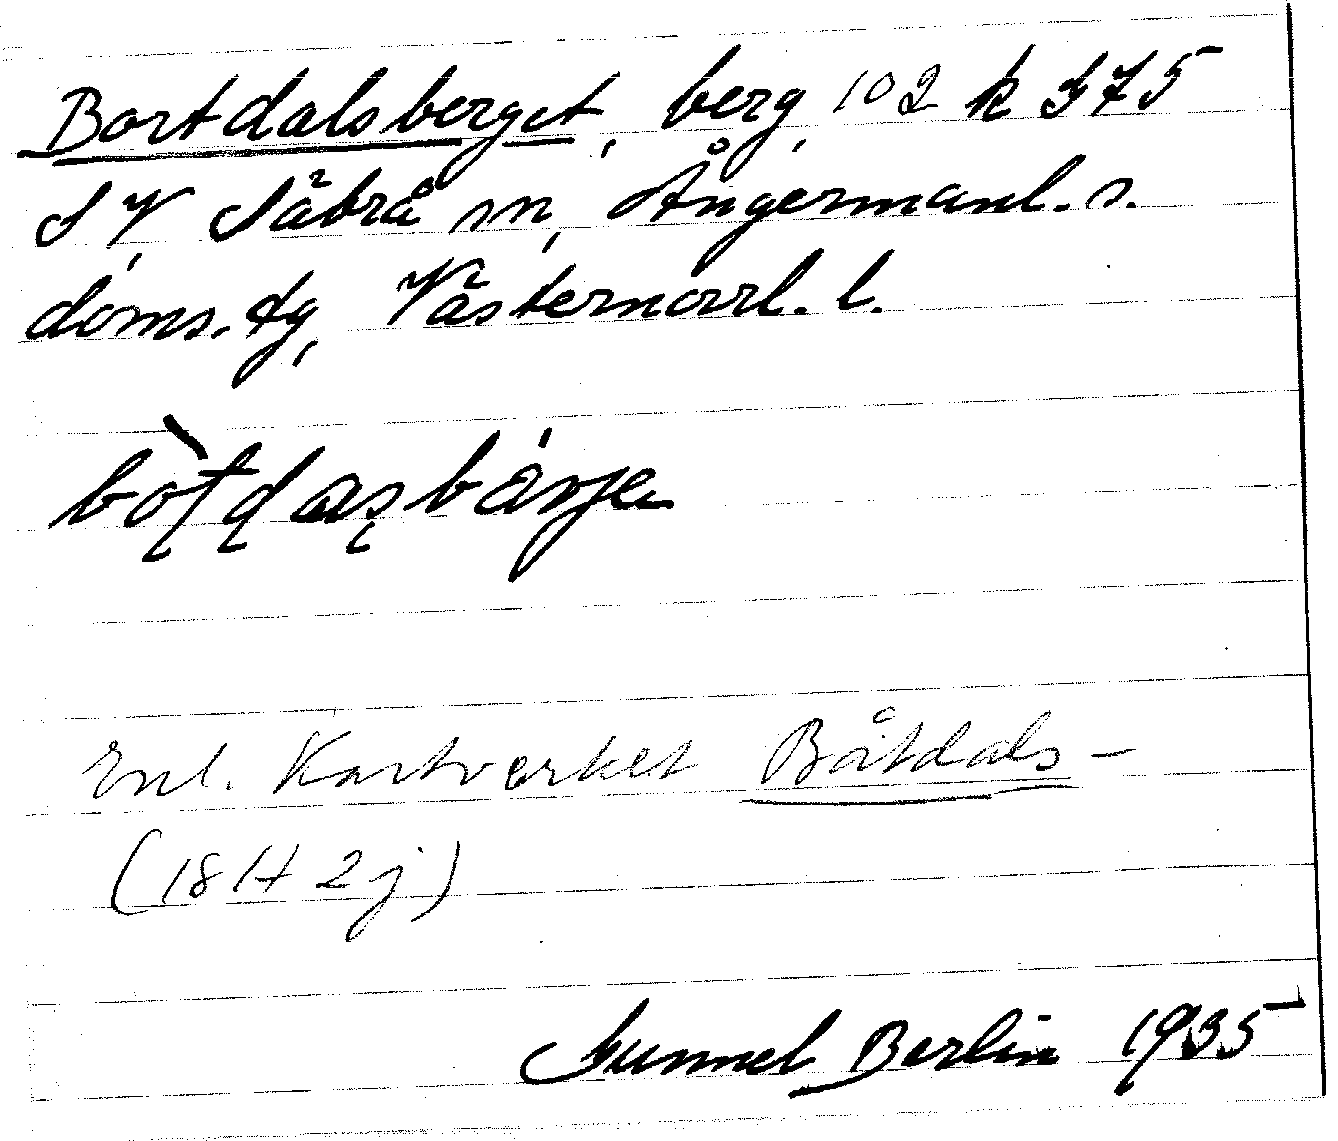 Bortdalsberget, berg, 102 k 375
SV, Säbrå sn, Ångermanl. s.
doms. tg, Västernorrl. l.
Enl. Kartverket Båtdals-
(18 H 2 j)
Gunnel Berlin 1935